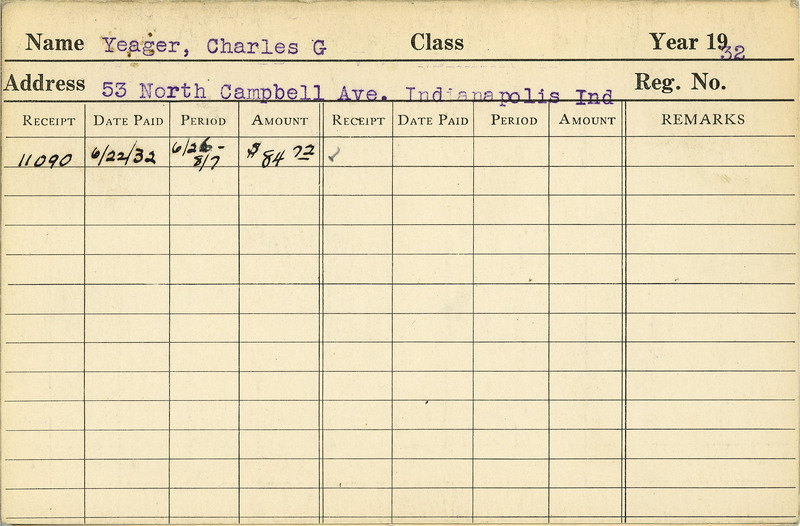 Name Yeager, Charles G Class Year 1932
Address 53 North Campbell Ave. Indianapolis Ind Reg. No.
RECEIPT DATE PAID PERIOD AMOUNT RECEIPT DATE PAID PERIOD AMOUNT REMARKS
11090 6/22/32 6/26- 8/7 $84 72 ✓